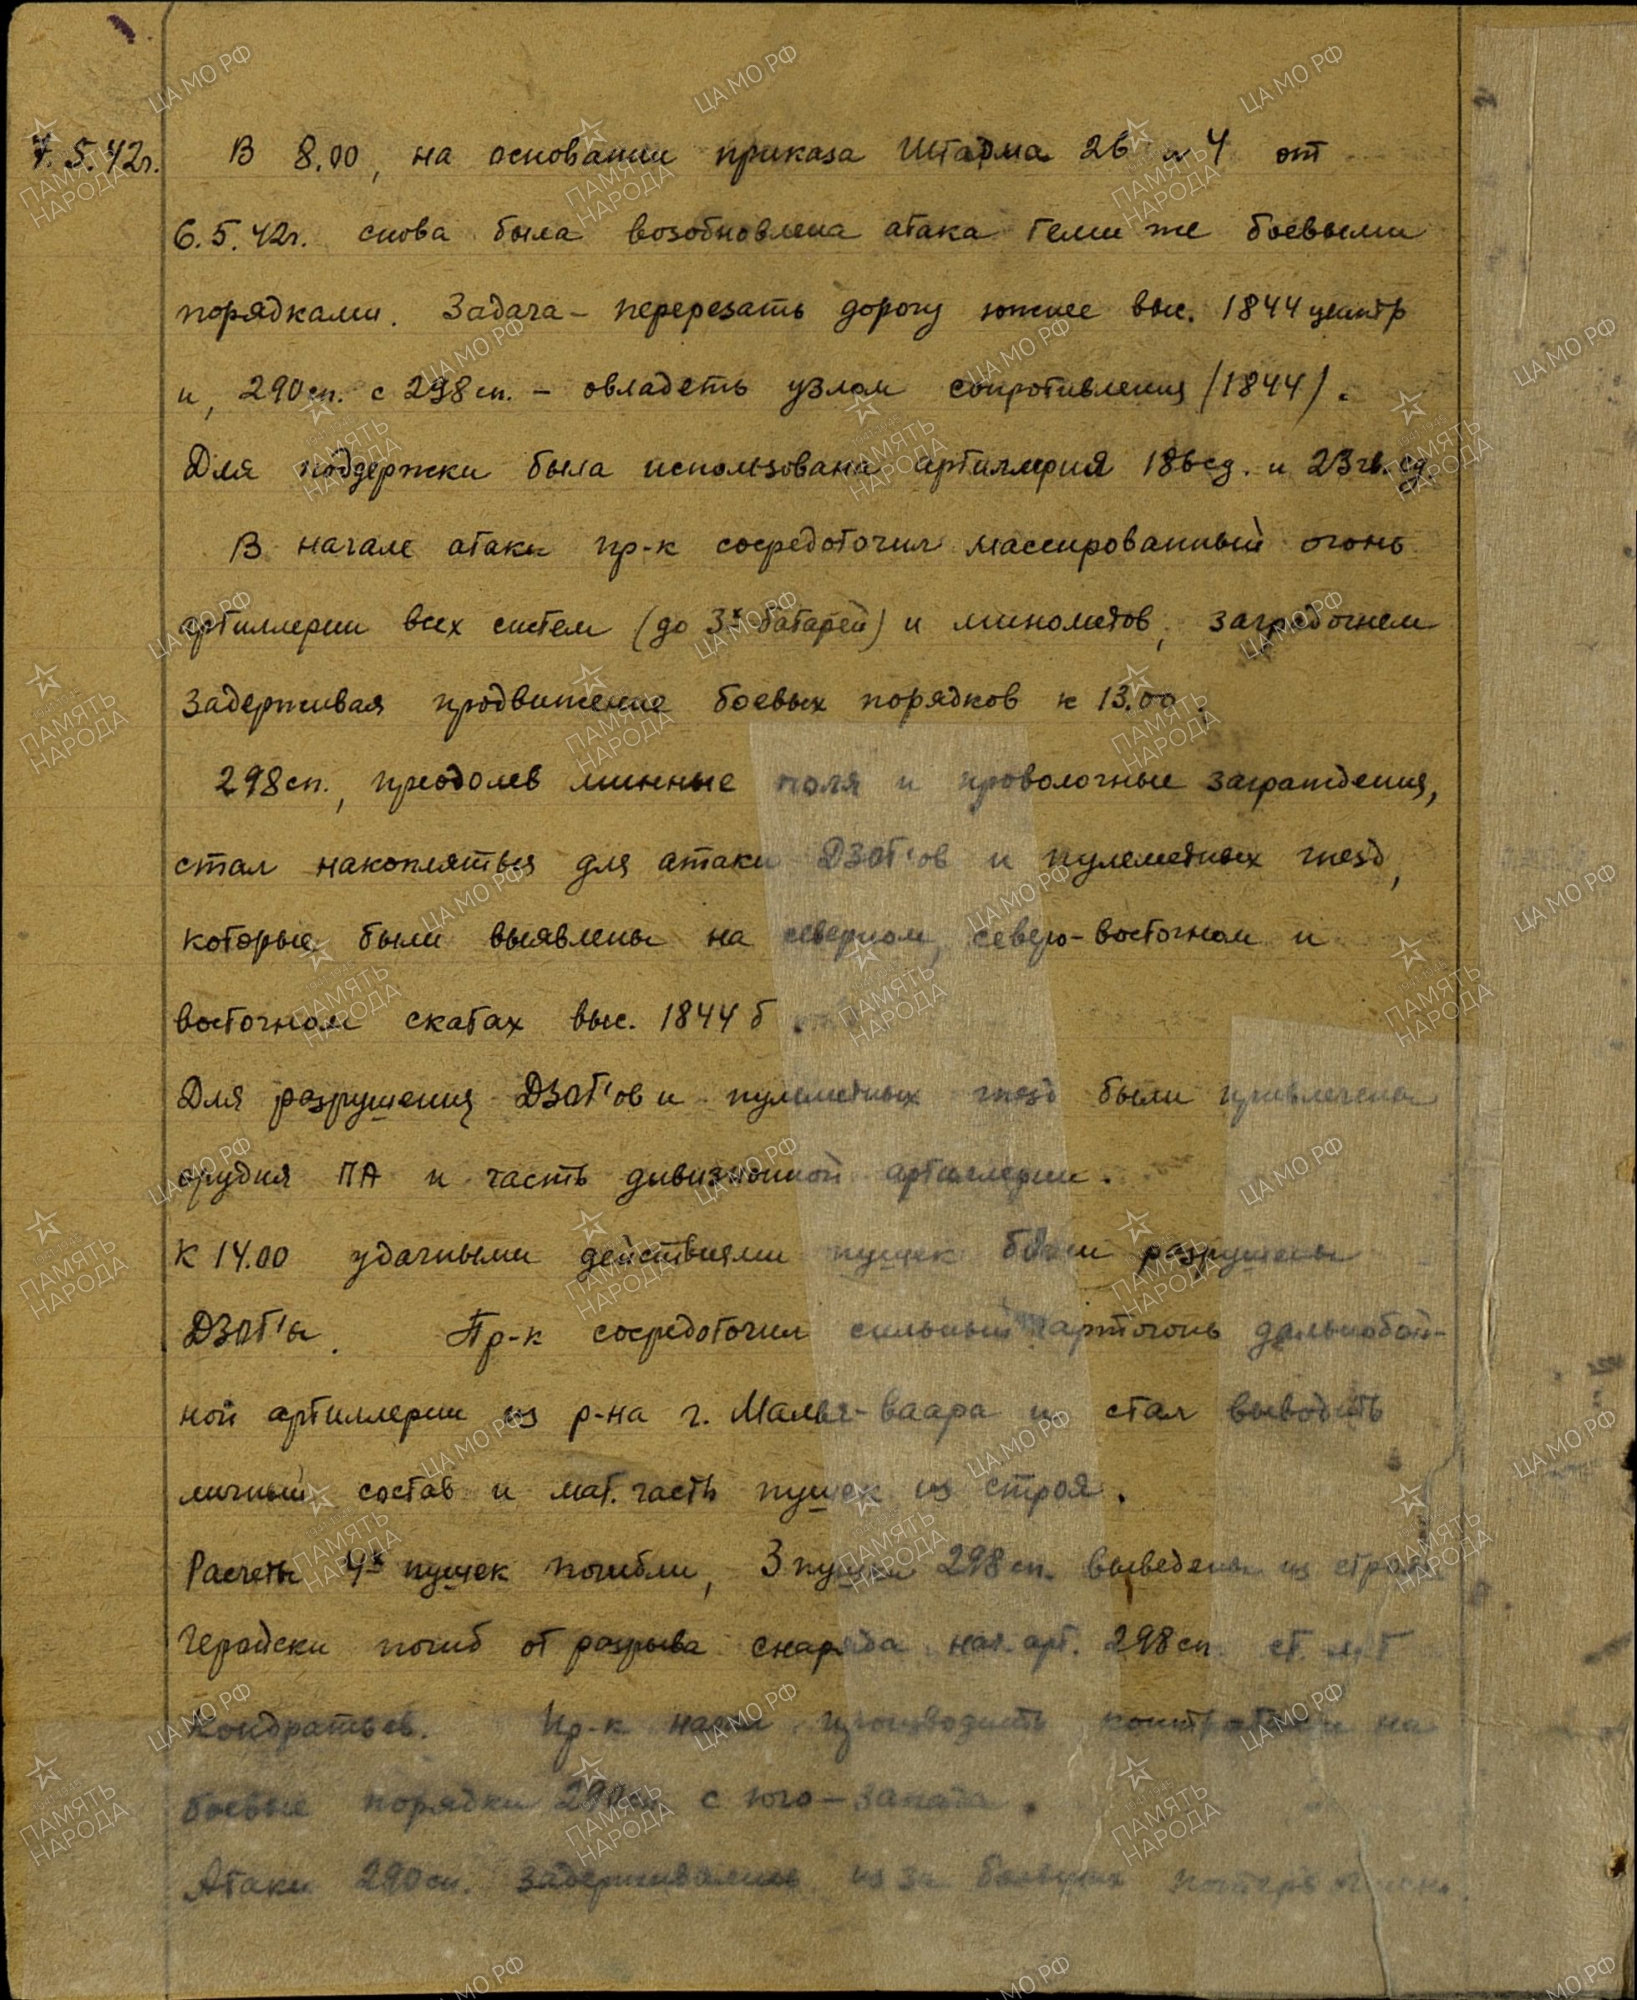 7.5.42г. В 8.00, на основании приказа Штарма 26 № 4 от
6.5.42г. снова была возобновлена атака теми же боевыми
порядками. Задача – перерезать дорогу южнее выс. 1844 центр
и, 290 сп. с 298 сп. – овладеть узлом сопротивления /1844/.
Для поддержки была использована артиллерия 186 сд. и 23 гв. сд.
В начале атаки пр-к сосредоточил массированный огонь
артиллерии всех систем (до 3х батарей) и минометов, заградогнем
задерживая продвижение боевых порядков к 13.00.
298 сп., преодолев минные поля и проволочные заграждения,
стал накопляться для атаки ДЗОТ'ов и пулеметных гнезд,
которые были выявлены на северном, северо-восточном и
восточном скатах выс. 1844 б.
Для разрушения ДЗОТ'ов и пулеметных гнезд были привлечены
орудия ПА и часть дивизионной артиллерии.
К 14.00 удачными действиями пушек были разрушены
ДЗОТ'ы. Пр-к сосредоточил сильный артогонь дальнобой-
ной артиллерии из р-на г. Маавя-ваара и стал выводить
личный состав и мат. часть пушек из строя.
Расчеты 4х пушек погибли, 3 пушки 298 сп. выведены из строя.
Геройски погиб от разрыва снаряда нач. арт. 298 сп. ст. л-т
Кондратьев. Пр-к начал производить контратаки на
боевые порядки 290 сп с юго-запада.
Атаки 290 сп. задерживались из за больших потерь